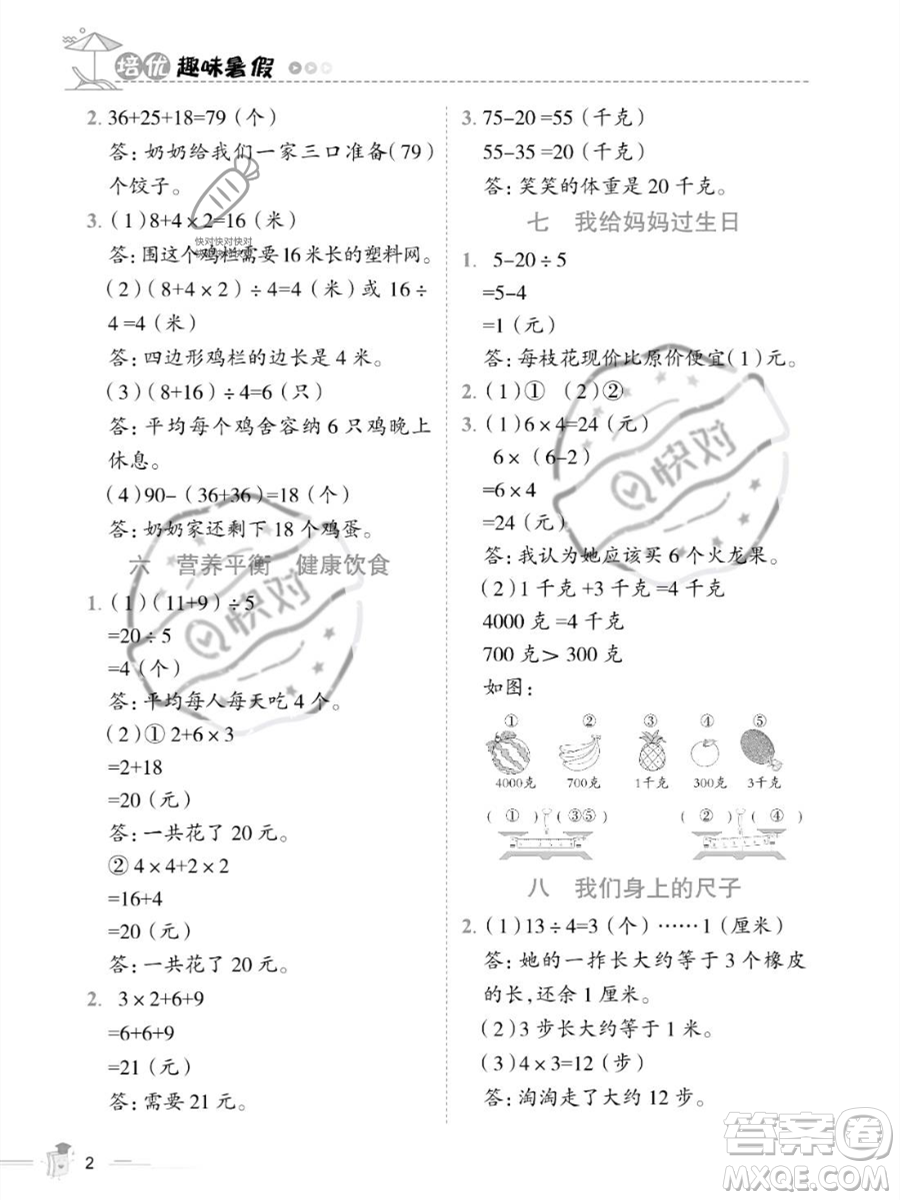 培优 趣味暑假
2. 36+25+18=79（个）
答：奶奶给我们一家三口准备（79）
个饺子。
3.（1）8+4×2=16（米）
快对快对快对
答：围这个鸡栏需要 16 米长的塑料网。
（2）（8+4×2）÷4=4（米）或 16÷
4 =4（米）
答：四边形鸡栏的边长是 4 米。
（3）（8+16）÷4=6（只）
答：平均每个鸡舍容纳 6 只鸡晚上
休息。
（4）90-（36+36）=18（个）
答：奶奶家还剩下 18 个鸡蛋。
六　营养平衡　健康饮食
1.（1）（11+9）÷5
=20÷5
=4（个）
答：平均每人每天吃 4 个。
（2）① 2+6×3
=2+18
=20（元）
答：一共花了 20 元。
② 4×4+2×2
=16+4
=20（元）
答：一共花了 20 元。
2. 3×2+6+9
=6+6+9
=21（元）
答：需要 21 元。
3. 75-20 =55（千克）
55-35 =20（千克）
答：笑笑的体重是 20 千克。
七　我给妈妈过生日
1. 5-20÷5
=5-4
=1（元）
答：每枝花现价比原价便宜（1）元。
2.（1）①　（2）②
3.（1）6×4=24（元）
6×（6-2）
=6×4
=24（元）
答：我认为她应该买 6 个火龙果。
（2）1 千克 +3 千克 =4 千克
4000 克 =4 千克
700 克＞ 300 克
如图：
① ② ③ ④ ⑤
4000克 700克 1千克 300克 3千克
（ ① ） （ ③⑤ ） （ ② ） （ ④ ）
八　我们身上的尺子
2.（1）13÷4=3（个）……1（厘米）
答：她的一拃长大约等于 3 个橡皮
的长，还余 1 厘米。
（2）3 步长大约等于 1 米。
（3）4×3=12（步）
答：淘淘走了大约 12 步。
快对
快对
2
答案卷
MXQE.COM